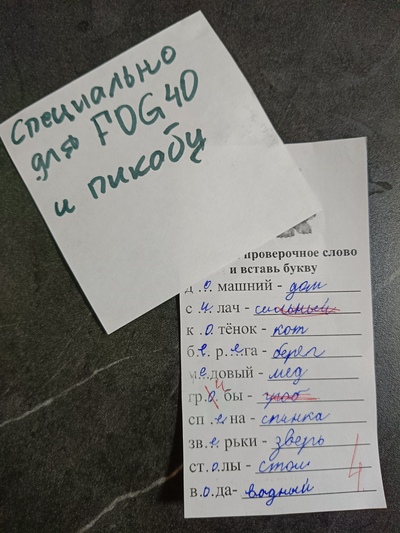 Специально
для FOG40
и пикабу
проверочное слово
и вставь букву
д.о.машний - дом
с.и.лач - сильный
к.о.тёнок - кот
б.е.р.е.га - берег
м.е.довый - мед
гр.о.бы - гроб
и
сп.е.на - спинка
зв.е.рьки - зверь
ст.о.лы - стол
в.о.да- водный
4